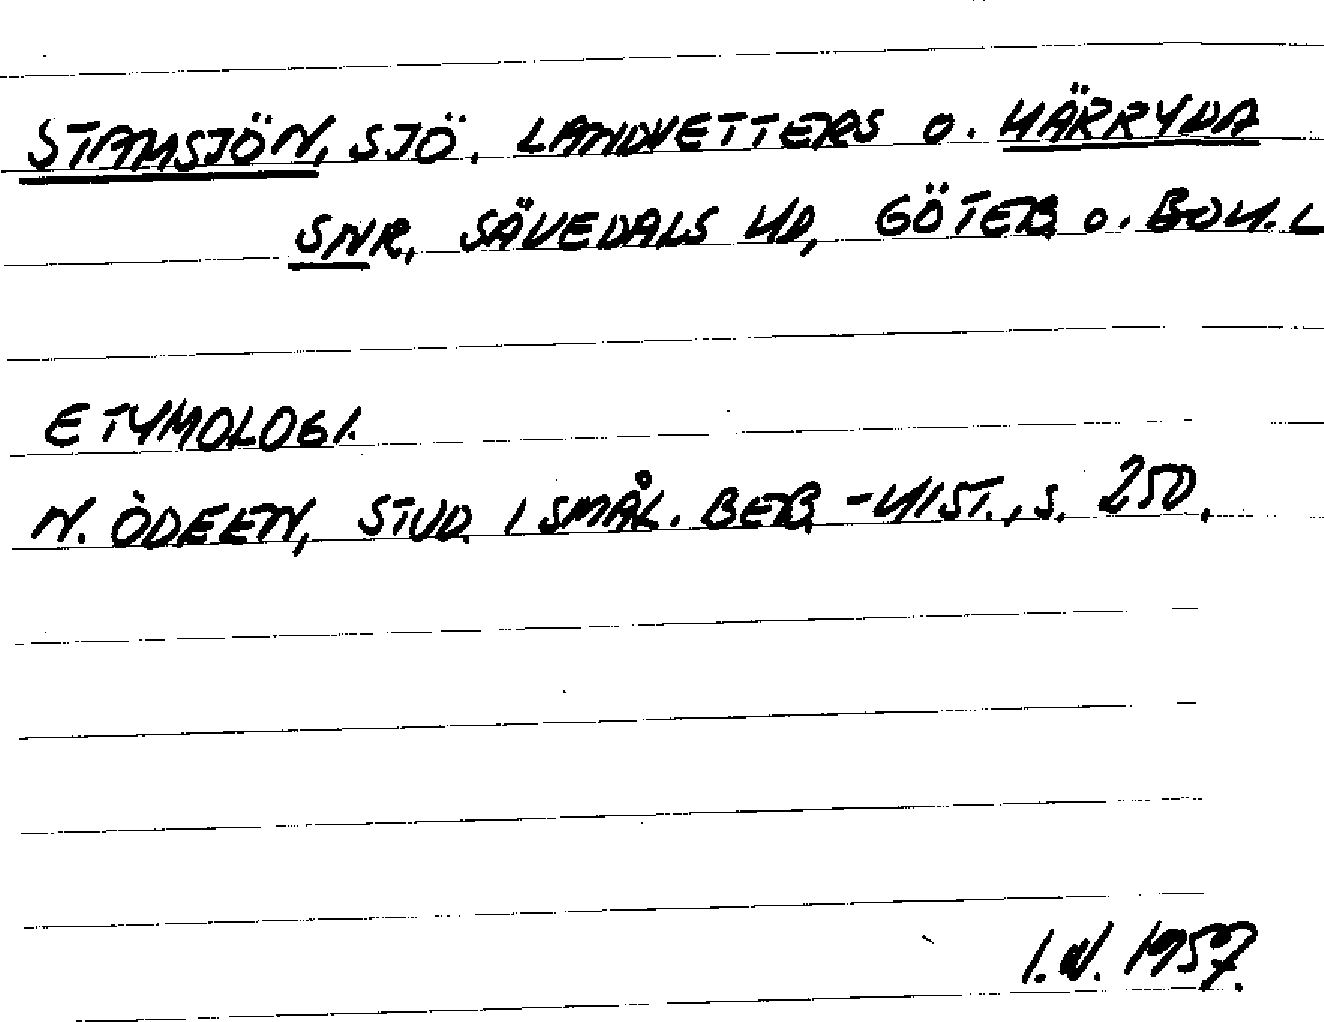 STAMSJÖN, SJÖ. LANDVETTERS O. HÄRRYDA
SNR, SÄVEDALS HD, GÖTEB O. BOH. L
ETYMOLOGI.
N. ÖDEEN, STUD. I SMÅL. BEB.-HIST., S. 250.
I. W. 1957.